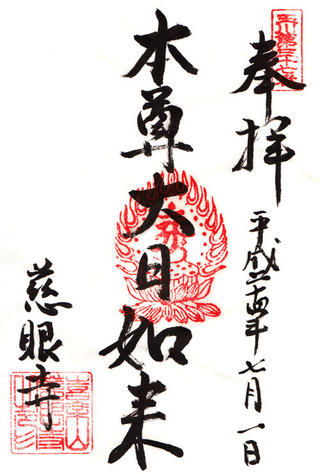 奉拝
平成二十四年七月一日
本尊大日如来
慈眼寺